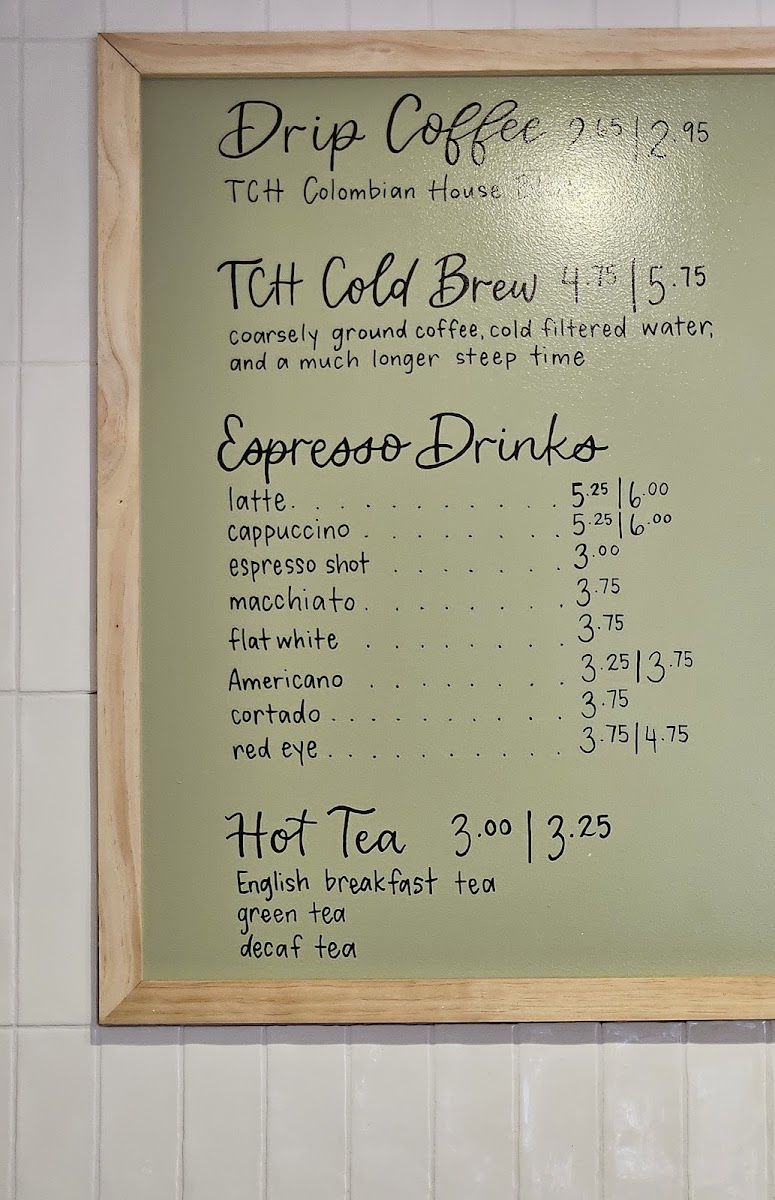 Drip Coffee 2.65 | 2.95
TCH Colombian House
TCH Cold Brew 4.75 | 5.75
coarsely ground coffee, cold filtered water,
and a much longer steep time
Espresso Drinks
latte. . . . . . . . . . . 5.25 | 6.00
cappuccino . . . . . . . . 5.25 | 6.00
espresso shot . . . . . . . 3.00
macchiato . . . . . . . . . 3.75
flat white . . . . . . . . 3.75
Americano . . . . . . . . 3.25 | 3.75
cortado . . . . . . . . . . 3.75
red eye . . . . . . . . . . 3.75 | 4.75
Hot Tea 3.00 | 3.25
English breakfast tea
green tea
decaf tea